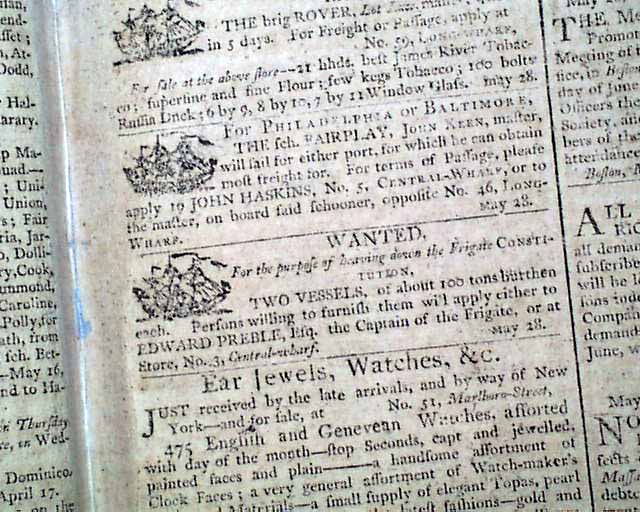 nd-
ffet;
,At-
Dodd,
Hal-
arary.
p Ma-
quad.—
; Uni-
Union,
s; Fair
ria, Jar-
o, Dolli-
ry, Cook,
ummond,
Caroline,
Polly, for
ath, from
fch. Bet-
—May 16,
nd to Ha-
on Thurſday
ce, in Wed-
Dominico.
April 17.
5, on the
THE brig ROVER,
in 5 days. For Freight or Paſſage, apply at
No. 59, LONG-WHARF,
For ſale at the above ſtore—21 hhds. beſt James River Tobac-
co; ſuperfine and fine Flour; few kegs Tobacco; 100 bolts
Ruſſia Duck; 6 by 9, 8 by 10, 7 by 11 Window Glaſs. may 28.
For PHILADELPHIA or BALTIMORE,
THE ſch. FAIRPLAY, JOHN KEEN, maſter,
will ſail for either port, for which he can obtain
moſt freight for. For terms of Paſſage, pleaſe
apply to JOHN HASKINS, No. 5, CENTRAL-WHARF, or to
the maſter, on board ſaid ſchooner, oppoſite No. 46, LONG-
WHARF. May 28.
WANTED,
For the purpoſe of heaving down the Frigate CONSTI-
TUTION,
TWO VESSELS, of about 100 tons burthen
each. Perſons willing to furniſh them will apply either to
EDWARD PREBLE, Eſq. the Captain of the Frigate, or at
Store, No. 3, Central-wharf. May 28.
Ear Jewels, Watches, &c.
JUST received by the late arrivals, and by way of New
York—and for ſale, at No. 51, Marlboro-Street,
475 Engliſh and Genevean Watches, aſſorted
with day of the month—ſtop Seconds, capt and jewelled,
painted faces and plain———a handſome aſſortment of
Clock Faces; a very general aſſortment of Watch-maker's
Materials—a ſmall ſupply of elegant Topas, pearl
lateſt faſhions—gold and
May
THE M
Promo
Meeting of
fice, in Boſton
day of June
Officers the
Society, an
bers of the
attendance
Boſton, M
ALL
RIC
all dema
ſubſcribe
will be
ſons ind
Compa
demand
June, w
May
NO
ſects
Maſſa
debt